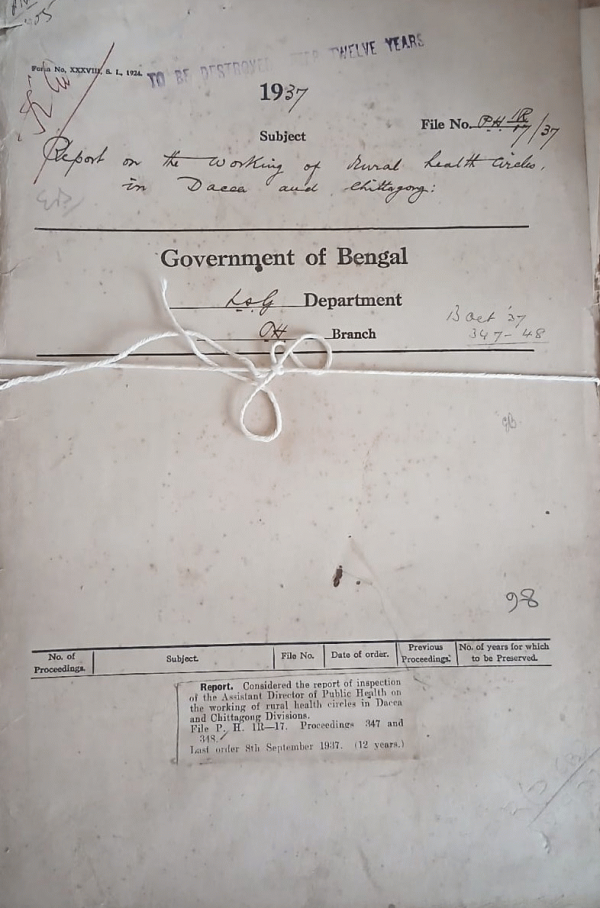 Form No. XXXVIII, S. L., 1924.
TO BE DESTROYED AFTER TWELVE YEARS
1937
File No. P.H. 1R/17/37
Subject
Report on the working of Rural health Circles,
in Dacca and Chittagong:
Government of Bengal
L.S.G Department
P.H. Branch
B Oct '37
347-48
98
No. of Proceedings. Subject. File No. Date of order. Previous Proceedings. No. of years for which to be Preserved.
Report. Considered the report of inspection
of the Assistant Director of Public Health on
the working of rural health circles in Dacca
and Chittagong Divisions.
File P. H. 1R—17. Proceedings 347 and
348.
Last order 8th September 1937. (12 years.)